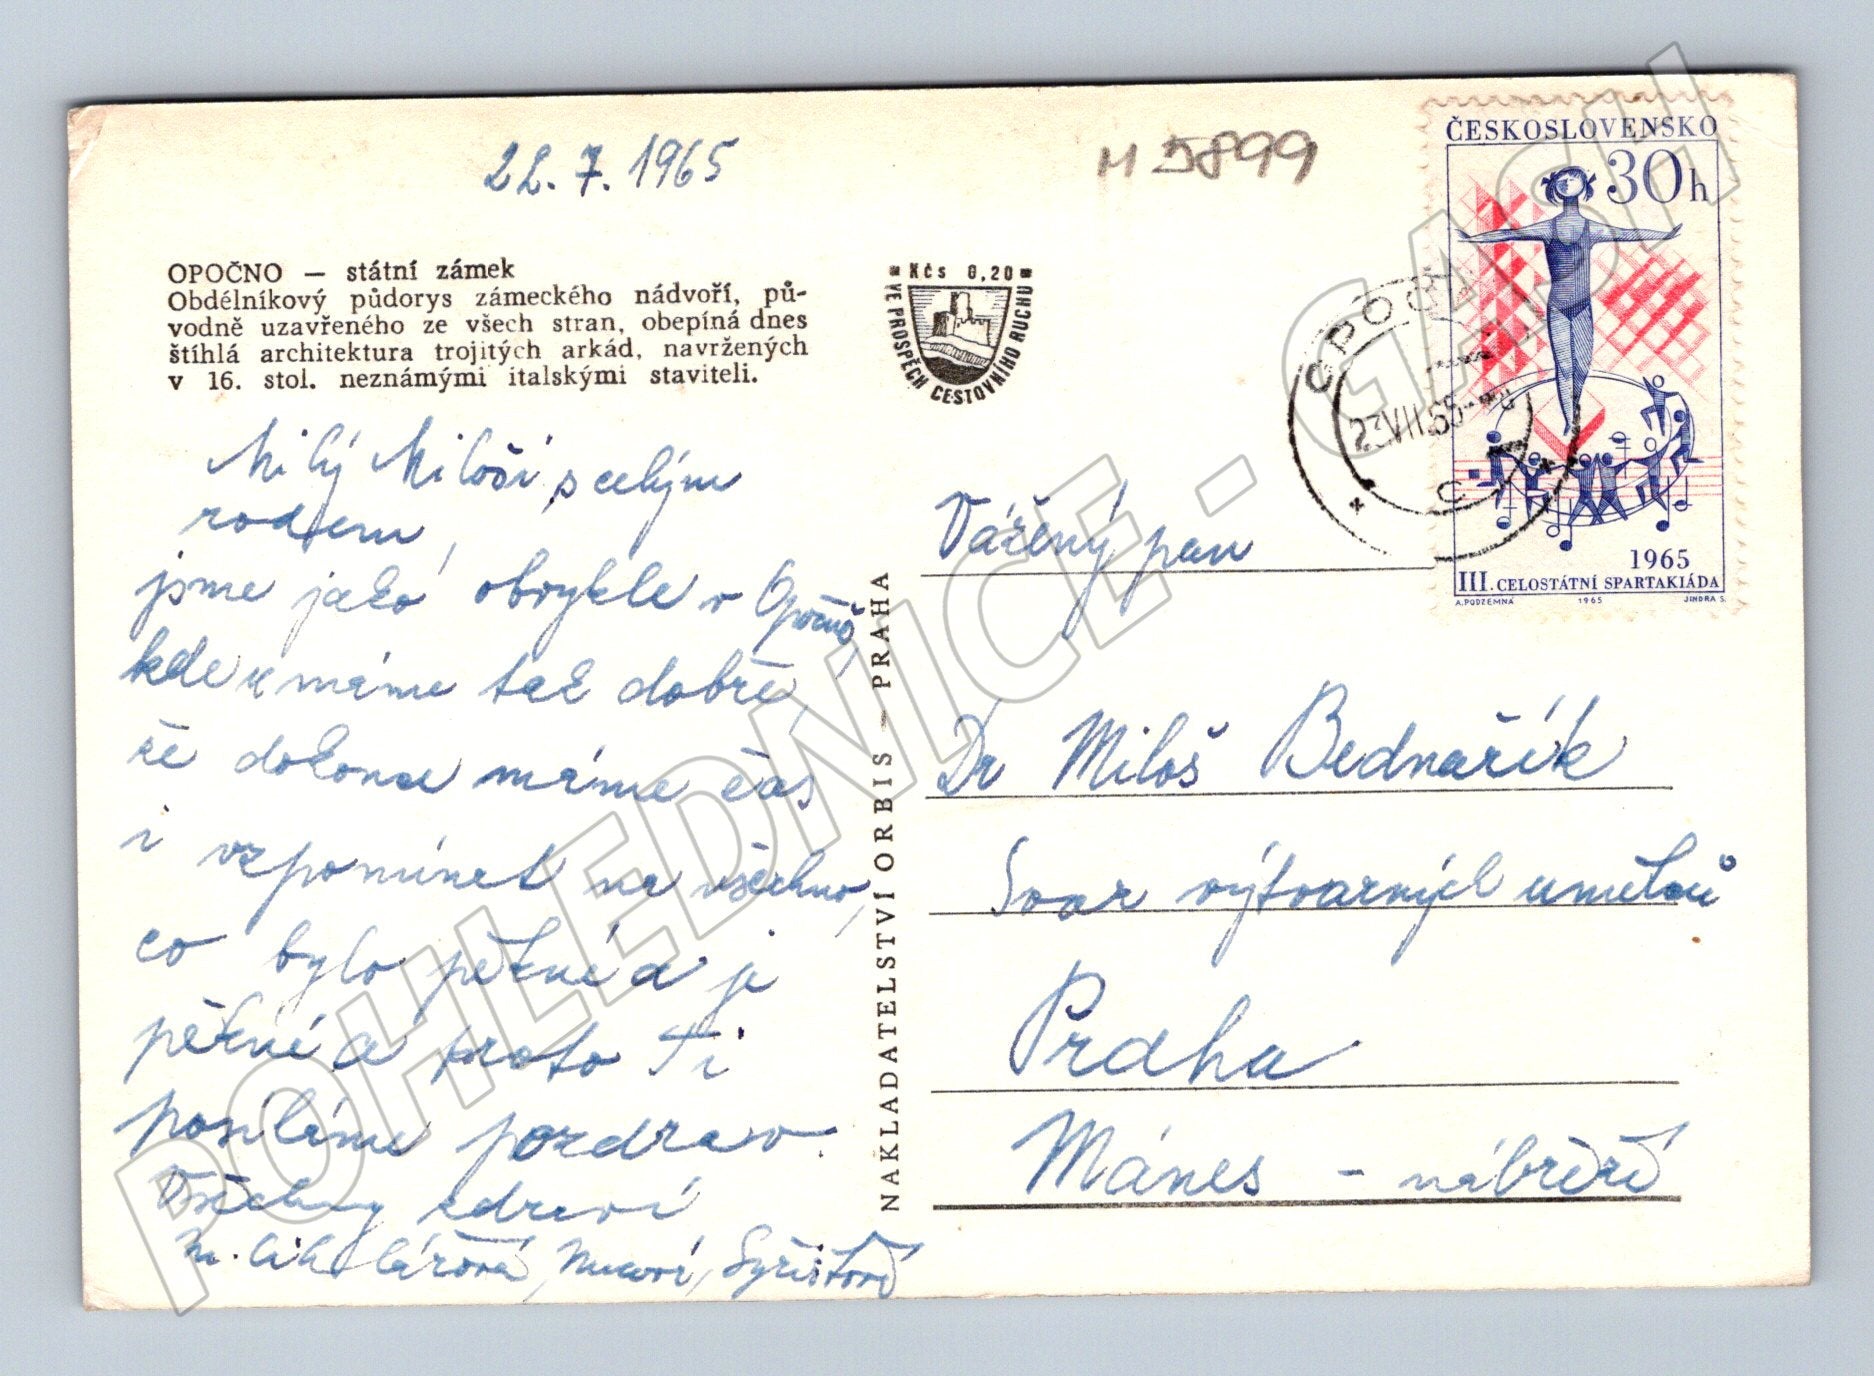 22. 7. 1965
M 5899
ČESKOSLOVENSKO
30h
1965
III. CELOSTÁTNÍ SPARTAKIÁDA
A. PODZEMNÁ 1965 JINDRA S.
OPOČNO
23.VII.65
OPOČNO — státní zámek
Obdélníkový půdorys zámeckého nádvoří, pů-
vodně uzavřeného ze všech stran, obepíná dnes
štíhlá architektura trojitých arkád, navržených
v 16. stol. neznámými italskými staviteli.
Kčs 0,20
VE PROSPĚCH CESTOVNÍHO RUCHU
Milý Miloši s celým
rodem,
jsme jako obvykle v Opočně,
kde máme tak dobře,
že dokonce máme čas
i vzpomínat na všechno,
co bylo pěkné a je
pěkné a proto Ti
posíláme pozdrav.
Všechny zdraví
NAKLADATELSTVÍ ORBIS — PRAHA
Vážený pan
Dr Miloš Bednařík
Svaz výtvarných umělců
Praha
Mánes - nábřeží
POHLEDNICE - GASH